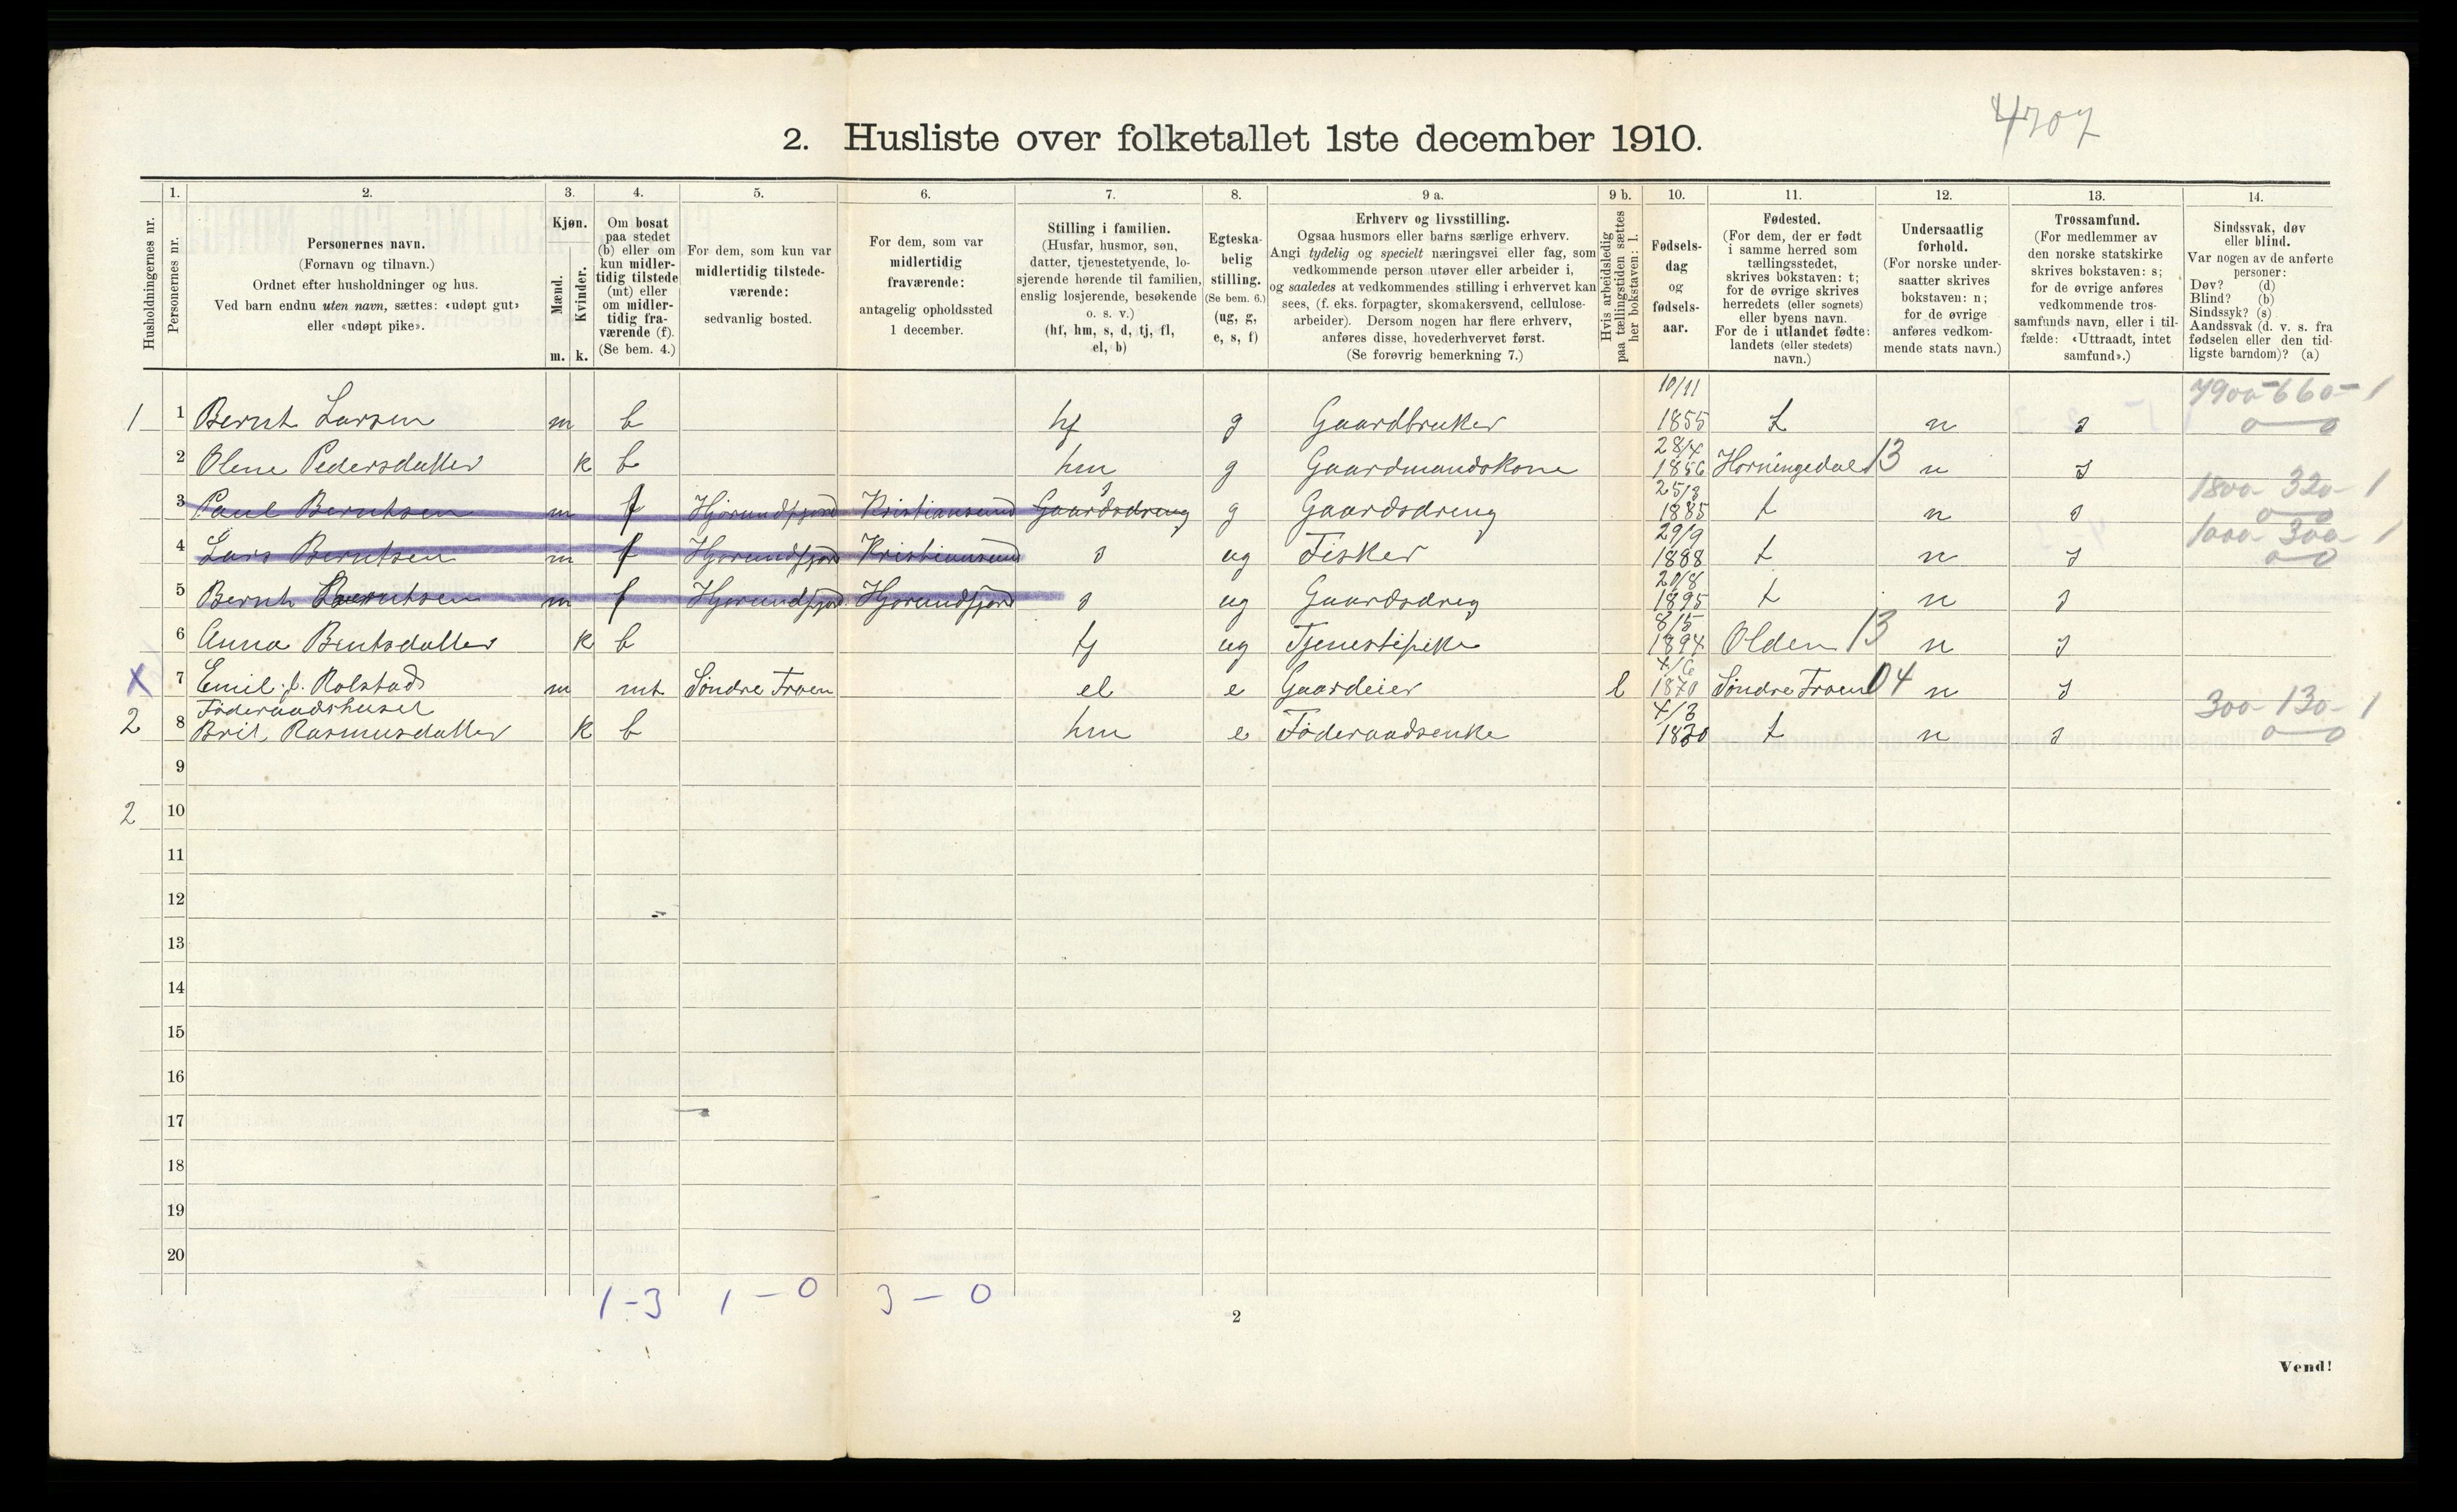 4707
2. Husliste over folketallet 1ste december 1910.
Husholdningernes nr.
1. Personernes nr.
2. Personernes navn. (Fornavn og tilnavn.) Ordnet efter husholdninger og hus. Ved barn endnu uten navn, sættes: «udøpt gut» eller «udøpt pike».
3. Kjøn. Mænd. m. Kvinder. k.
4. Om bosat paa stedet (b) eller om kun midlertidig tilstede (mt) eller om midlertidig fraværende (f). (Se bem. 4.)
5. For dem, som kun var midlertidig tilstedeværende: sedvanlig bosted.
6. For dem, som var midlertidig fraværende: antagelig opholdssted 1 december.
7. Stilling i familien. (Husfar, husmor, søn, datter, tjenestetyende, losjerende hørende til familien, enslig losjerende, besøkende o. s. v.) (hf, hm, s, d, tj, fl, el, b)
8. Egteskabelig stilling. (Se bem. 6.) (ug, g, e, s, f)
9 a. Erhverv og livsstilling. Ogsaa husmors eller barns særlige erhverv. Angi tydelig og specielt næringsvei eller fag, som vedkommende person utøver eller arbeider i, og saaledes at vedkommendes stilling i erhvervet kan sees, (f. eks. forpagter, skomakersvend, cellulosearbeider). Dersom nogen har flere erhverv, anføres disse, hovederhvervet først. (Se forøvrig bemerkning 7.)
9 b. Hvis arbeidsledig paa tællingstiden sættes her bokstaven: l.
10. Fødselsdag og fødselsaar.
11. Fødested. (For dem, der er født i samme herred som tællingsstedet, skrives bokstaven: t; for de øvrige skrives herredets (eller sognets) eller byens navn. For de i utlandet fødte: landets (eller stedets) navn.)
12. Undersaatlig forhold. (For norske undersaatter skrives bokstaven: n; for de øvrige anføres vedkommende stats navn.)
13. Trossamfund. (For medlemmer av den norske statskirke skrives bokstaven: s; for de øvrige anføres vedkommende trossamfunds navn, eller i tilfælde: «Uttraadt, intet samfund».)
14. Sindssvak, døv eller blind. Var nogen av de anførte personer: Døv? (d) Blind? (b) Sindssyk? (s) Aandssvak (d. v. s. fra fødselen eller den tidligste barndom)? (a)
1 1 Bernt Larsen m b hf g Gaardbruker 10/11 1855 t n s 7900-660-1 0-0
2 Olene Pedersdatter k b hm g Gaardmandskone 28/4 1856 Horningedal 13 n s
3 Paul Berntsen m f Hjørundfjord Kristiansund Gaardsdreng s g Gaardsdreng 25/3 1885 t n s 1800-320-1 0-0
4 Lars Berntsen m f Hjørundfjord Kristiansund s ug Fisker 29/9 1888 t n s 1000-300-1 0-0
5 Bernt Berntsen m f Hjørundfjord Hjørundfjord s ug Gaardsdreg 20/8 1895 t n s
6 Anna Bentsdatter k b tj ug Tjenestepike 8/5 1894 Olden 13 n s
X 7 Emil J. Rolstad m mt Søndre Froen el e Gaardeier l 4/6 1870 Søndre Froen 04 n s
Føderaadshuset
2 8 Brit Rasmusdatter k b hm e Føderaadsenke 4/3 1830 t n s 300-130-1 0-0
9
2 10
11
12
13
14
15
16
17
18
19
20
1-3 1-0 3-0
2
Vend!